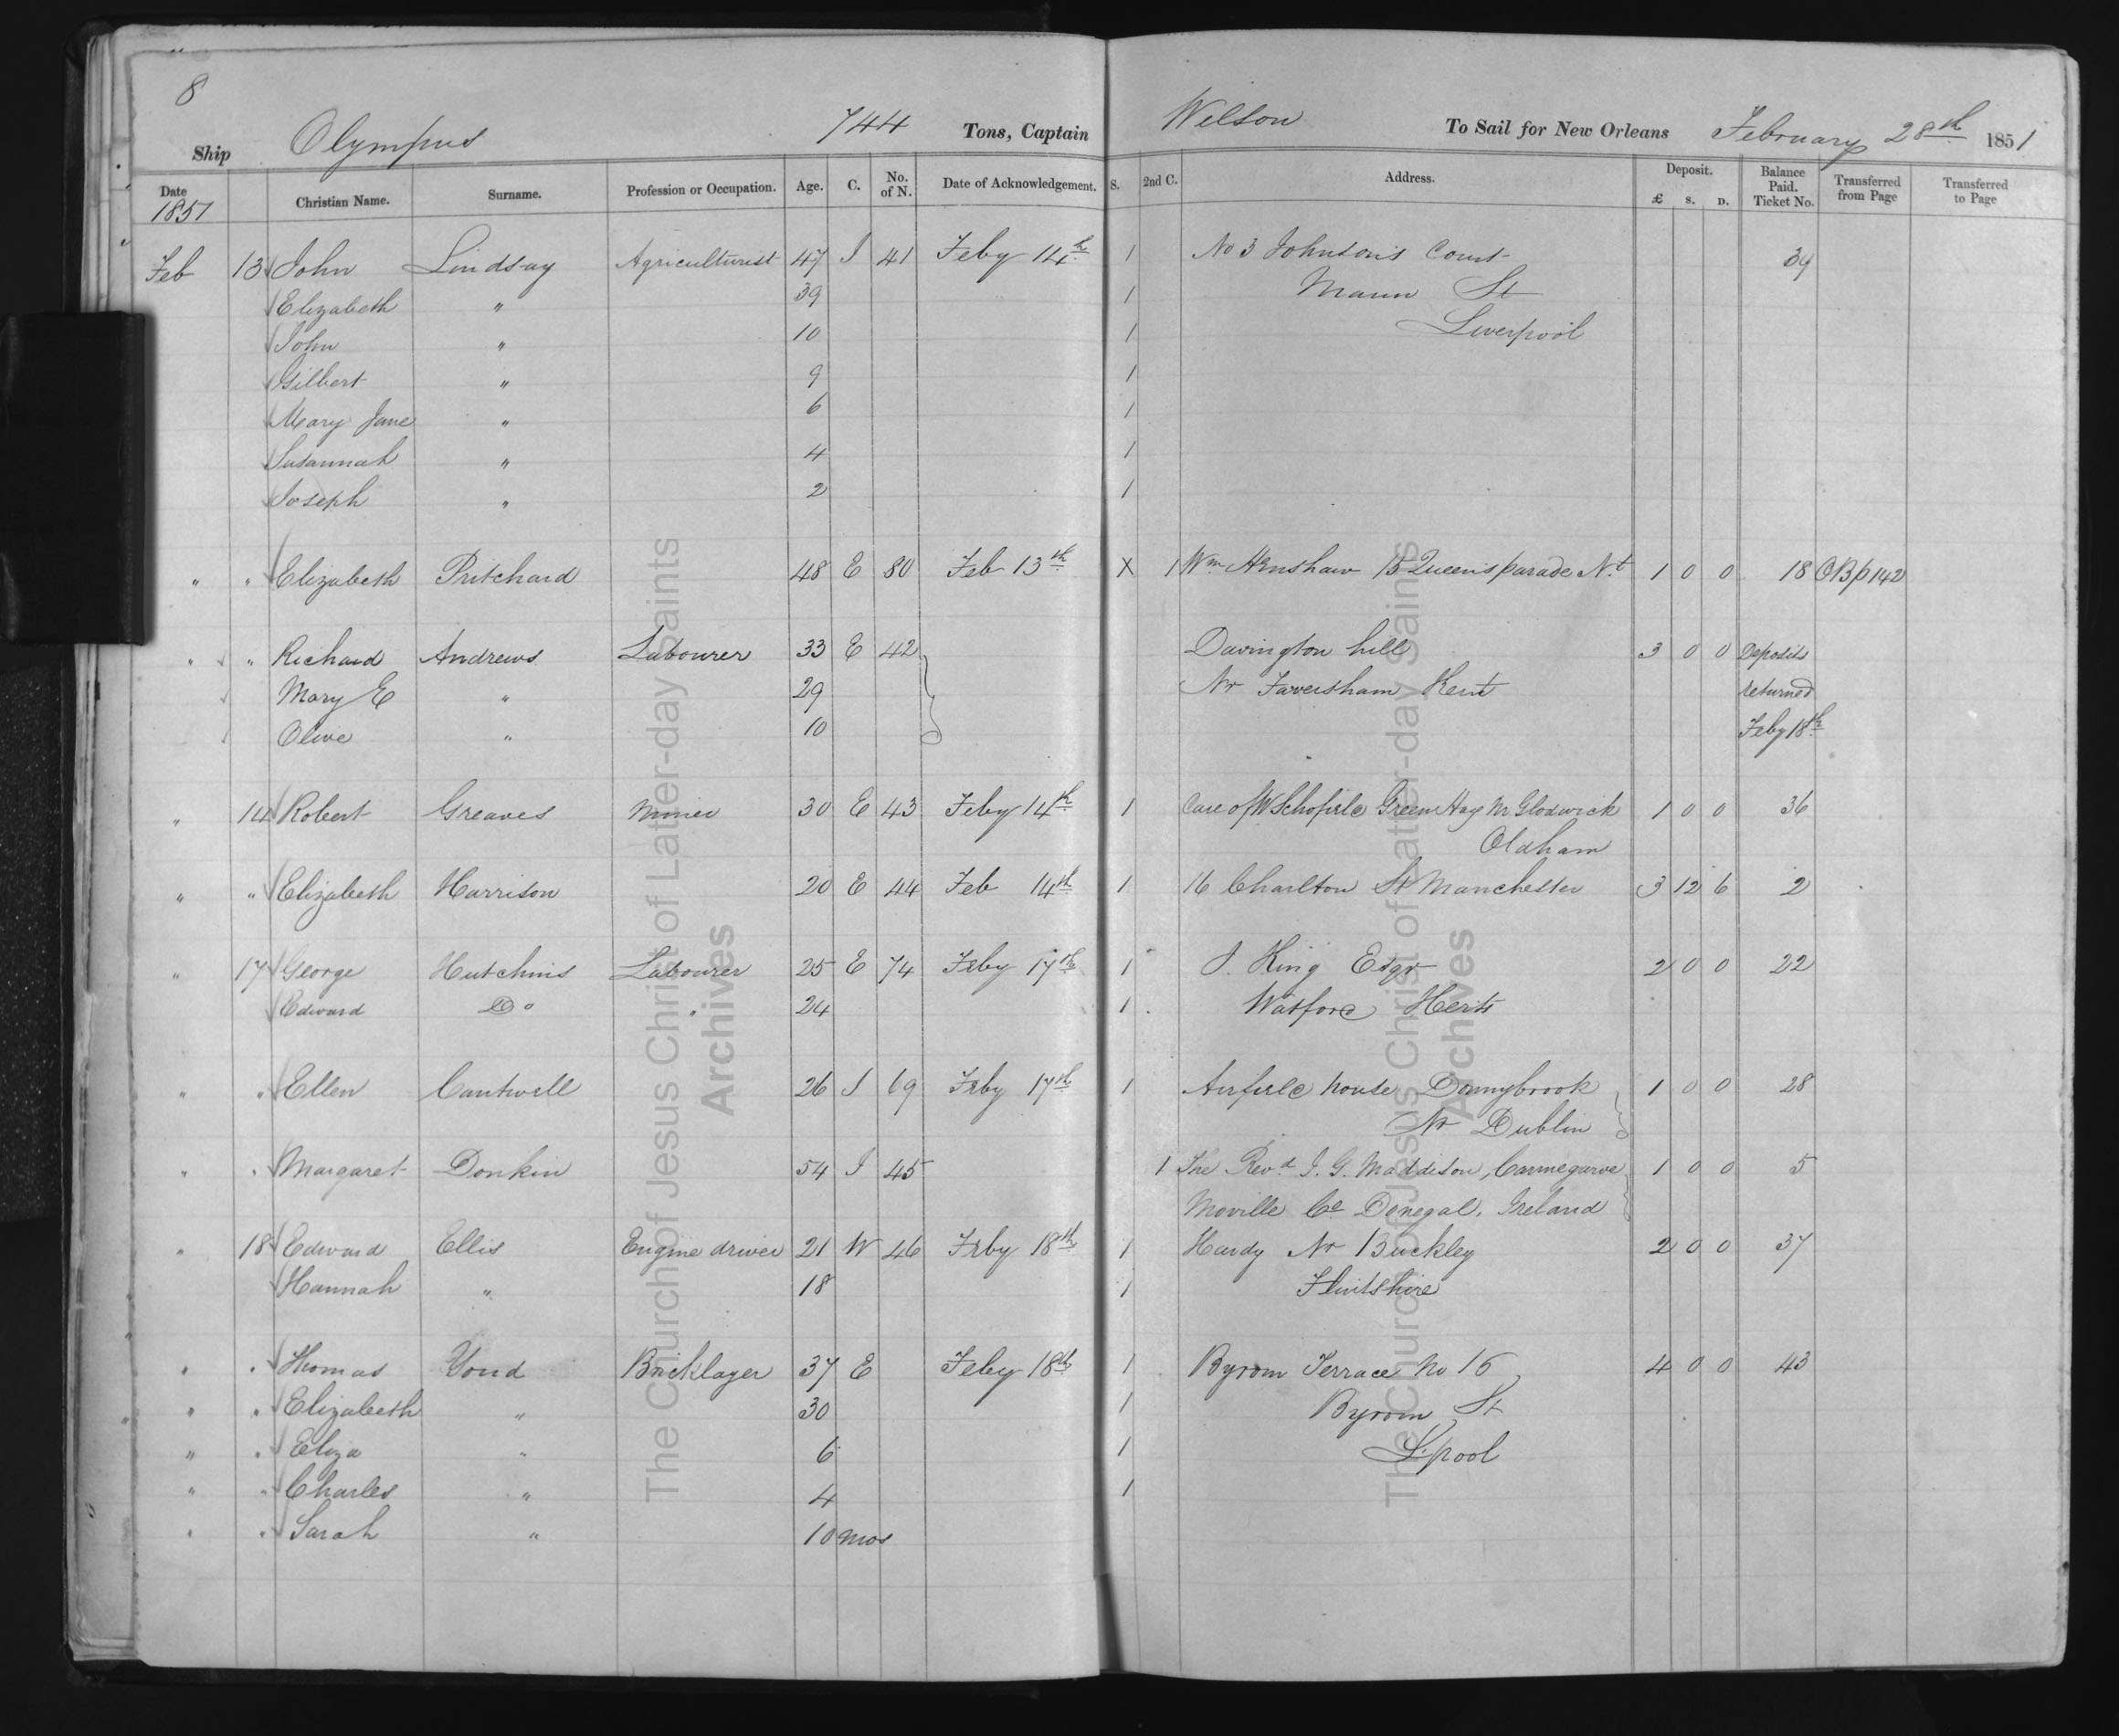 8
Ship Olympus 744 Tons, Captain Wilson To Sail for New Orleans February 28th 1851
Date Christian Name. Surname. Profession or Occupation. Age. C. No. of N. Date of Acknowledgement. S. 2nd C. Address. Deposit. £ S. D. Balance Paid. Ticket No. Transferred from Page Transferred to Page
1851
Feb 13 John Lindsay Agriculturist 47 I 41 Feby 14th 1 No 3 Johnson's Court 34
Elizabeth " 39 1 Mann St
John " 10 1 Liverpool
Gilbert " 9 1
Mary Jane " 6 1
Susannah " 4 1
Joseph " 2 1
" " Elizabeth Pritchard 48 E 80 Feb 13th X 1 Wm Henshaw 15 Queens parade Nt 1 0 0 18 OB p 142
" " Richard Andrews Labourer 33 E 42 Davington hill 3 0 0 Deposits
Mary E " 29 Nr Faversham Kent returned
Olive " 10 Feby 18th
" 14 Robert Greaves Miner 30 E 43 Feby 14th 1 Care of W Schofield Green Hay Nr Glodwick 1 0 0 36
Oldham
" " Elizabeth Harrison 20 E 44 Feb 14th 1 16 Charlton St Manchester 3 12 6 2
" 17 George Hutchins Labourer 25 E 74 Feby 17th 1 J. King Esqr 2 0 0 22
Edward Do " 24 1 Watford Herts
" " Ellen Cantwell 26 I 69 Feby 17th 1 Airfield house Donnybrook 1 0 0 28
Nr Dublin
" " Margaret Donkin 54 I 45 1 The Revd I. G. Maddison, Carnegarve 1 0 0 5
Moville Co Donegal, Ireland
" 18 Edward Ellis Engine driver 21 W 46 Feby 18th 1 Hardy Nr Buckley 2 0 0 37
Hannah " 18 1 Flintshire
" " Thomas Yond Bricklayer 37 E Feby 18th 1 Byrom Terrace No 16 4 0 0 43
" " Elizabeth " 30 1 Byrom St
" " Eliza " 6 1 L.pool
" " Charles " 4 1
" " Sarah " 10 mos
The Church of Jesus Christ of Latter-day Saints
Archives
The Church of Jesus Christ of Latter-day Saints
Archives